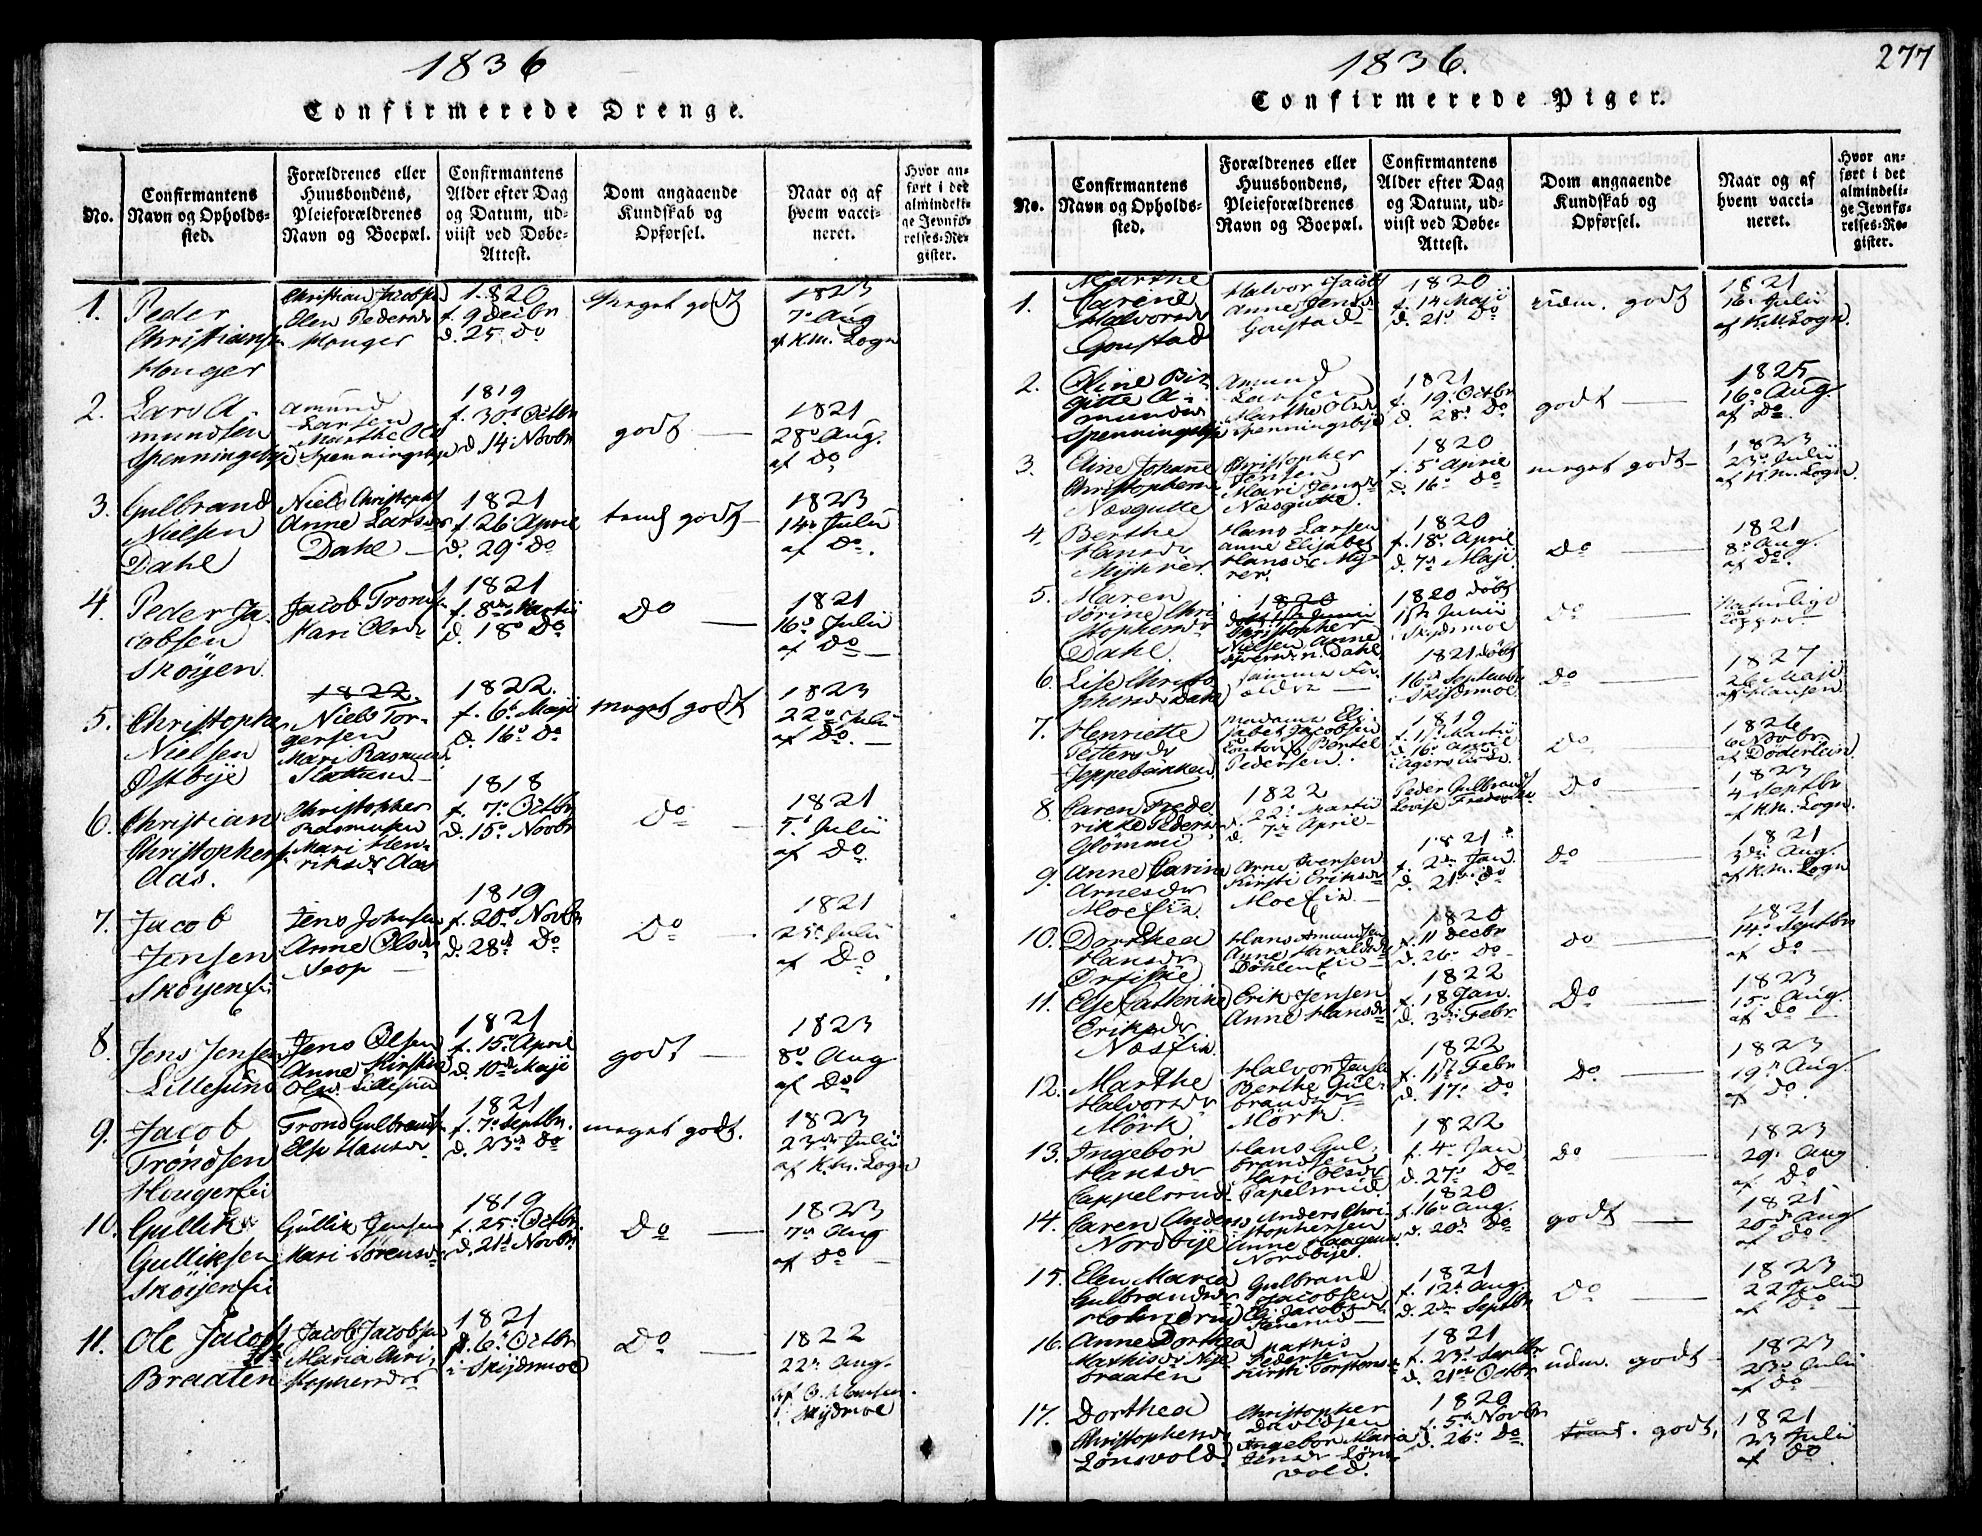 1836
Confirmerede Drenge.
No.
Confirmantens
Navn og Opholds-
sted.
Forældrenes eller
Huusbondens,
Pleieforældrenes
Navn og Boepæl.
Confirmantens
Alder efter Dag
og Datum, ud-
viist ved Døbe-
Attest.
Dom angaaende
Kundskab og
Opførsel.
Naar og af
hvem vacci-
neret.
Hvor an-
ført i det
almindeli-
ge Jevnfø-
relses-Re-
gister.
1.
Peder
Christiansen
Houger
Christian Jacobsen
Elen Pedersdr
Houger
1820
f. 9 Decbr
d. 25 Do
Meget godt
1823
7de Aug
af K.m. Sogn
2.
Lars A-
mundsen
Spenningsbye
Amund
Larsen
Marthe Ols
Spenningsbye
1819
f. 30 Octbr
d. 14 Novbr
godt
1821
28 Aug.
af Do
3.
Gulbrand
Nielsen
Dahl
Niels Christophs
Anne Larsdr
Dahl
1821
f. 26 April
d. 29 Do
godt
1823
14 Julii
af Do.
4.
Peder Ja-
cobsen
Skøyen
Jacob Trondsen
Kari Olsdr
1821
f. 8de Martii
d. 18 Do
Do
1821
16 Julii
af Do
5.
Christopher
Nielsen
Østbÿe
1822.
Niels Tor-
gersen
Mari Rasmusd
1822.
f. 6 Maji
d. 16 Do
meget godt
1823
22 Julii
af Do.
6.
Christian
Christophers
Aas.
Christopher
Rasmusen
Mari Hen-
riksdr Aas
1818
f. 7 Octbr
d. 15 Novbr
Do
1821
5 Julii
af Do
7.
Jacob
Jensen
Skøyenei
Jens Johnsen
Anne Olsdr
1819
f. 20 Novbr
d. 28 Do
Do
1821
25 Julii
af Do
8.
Jens Jensen
Lillesund
Jens Olsen
Anne Kirstine
Olsd. Lillesund
1821
f. 15 April
d. 10 Maji
godt
1823
8 Aug
af Do
9.
Jacob
Trondsen
Hougerei
Trond Gulbrands
Else Hansdr
1821
f. 7 Septbr.
d. 23 Do
meget godt.
1823
23 Julii
af K.m. Sogn
10.
Gullik
Gulliksen
Skøyenei
Gullik Jensen
Mari Sørensdr
1819
f. 25 Octbr
d. 21 Novbr
Do
1823
7de Aug
af Do
11.
Ole Jacobs
Braaten
Jacob Jacobsen
Maria Chri-
stophersdr
1821
f. 6 Octbr
i Skydsmoe
Do
1822
22 Aug.
af O. Hansen
i Skydmoe
277
1836.
Confirmerede Piger.
No.
Confirmantens
Navn og Opholds-
sted.
Forældrenes eller
Huusbondens,
Pleieforældrenes
Navn og Boepæl.
Confirmantens
Alder efter Dag
og Datum, ud-
viist ved Døbe-
Attest.
Dom angaaende
Kundskab og
Opførsel.
Naar og af
hvem vacci-
neret.
Hvor an-
ført i det
almindeli-
ge Jevnfø-
relses-Re-
gister.
1.
Marthe
Carene
Halvorsdr
Goustad
Halvor Jacobs
Anne Jensdr
Goustad
1820
f. 14 Maji
d. 21 Do
udm. godt
1821
16 Julii
af K.M. Sogn.
2.
Oline Bir
gitte A-
mundsdr
Spenningsbye
Amund
Larsen
Marthe Olsdr
Spenningsbye
1821
f. 19 Octbr
d. 28 Do
godt
1825
16 Aug.
af Do
3.
Eline Johanne
Christophersd
Næsgutte
Christopher
Jensen
Mari Jensdr
Næsgutte.
1820
f. 5 April
d. 16 Do
meget godt
1823
23 Julii
af K.m. Sogn
4.
Berthe
Hansdr
Myhrer
Hans Larsen
Anne Elisabet
Hansdr My-
rer.
1820
f. 18 April
d. 7 Maji
Do
1821
8 Aug.
af Do.
5.
Maren
Sørine Chri-
stophersdr
Dahl.
1820
Christopher
Nielsen Anne
Dahl
1820 døbt
Junii
i Skydsmoe
Do
Naturlige
Kopper
6.
Lise Christo-
phersdr Dahl
samme For-
ældre
1821 døbt
16 Septembr
i Skidsmoe
Do
1827
26 Maji
af Hansen
7.
Henriette
Pettersdr
Jeppebakken
madame Eli-
sabet Jacobsen
Bertel
Pedersen.
1819
f. 17 Martii
d. 16 April
i Agershuus
Do
1826
6 Novbr
af Døderlein
8.
Caren Frede-
rikke Pedersd
Glommi
1822
22 Martii
d. 7 April
Peder Gulbrands
Lovise Frederikke
Do
1823
4 Septbr
af K.m. Sogn
9.
Anne Carine
Arnesdr
Moeei
Arne Iversen
Kirsti Eriksdr
Moeei
1821
f. 2 Jan.
d. 21 Do
Do
1821
3die Aug.
af K.m. Sogn
10.
Dorthea
Hansdr
Hans Amundsen
Anne Haraldsdr
Døhlenei
1820
f. 11 Decbr
d. 26 Do
Do
1821
14 Septbr
af Do
11.
Else Cathrine
Eriksdr
Næsei
Erik Jensen
Anne Hansdr
1822
f. 18 Jan.
d. 3die Febr
Do
1823
15 Aug.
af Do
12.
Marthe
Halvorsdr
Mørk
Halvor Jensen
Berthe Gul-
brandsdr
Mørk
1822
f. 1ste Febr
d. 17 Do
Do
1823
19 Aug.
af Do.
13.
Ingebor
Hansdr
Cappelsrud
Hans Gul-
brandsen
Mari Olsdr
Papelsrud.
1822
f. 4 Jan
d. 27 Do
Do
1823
29 Aug
af Do
14.
Caren Anders
Nordbÿe
Anders Chri-
stophersen
Anne Haagens
Nordbye.
1820
f. 16 Aug.
d. 20 Do
godt
1821
20 Aug
af Do
15.
Elen Maria
Gulbrandsdr
Holmsrud
Gulbrand
Jacobsen
Eli Jacobsdr
1821
f. 12 Aug.
d. 2den Septbr
Do
1823
22 Julii
af Do
16.
Anne Dorthea
Mathisdr Nye
braaten
Mathis
Pedersen
Kirsti Torstens
1821
f. 23 Septbr
d. 21 Octbr
udm. godt
1823
23 Julii
af Do
17.
Dorthea
Christophersdr
Lønsvold
Christopher
Davidsen
Ingebor Maria
Jensdr Løns-
vold.
1820
f. 5 Novbr
d. 26 Do.
godt,
1821
23 Julii
af Do